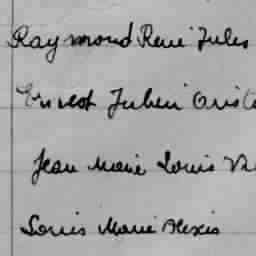 Raymond René Jules
Ernest Julien
Jean Marie Louis
Louis Marie Alexis